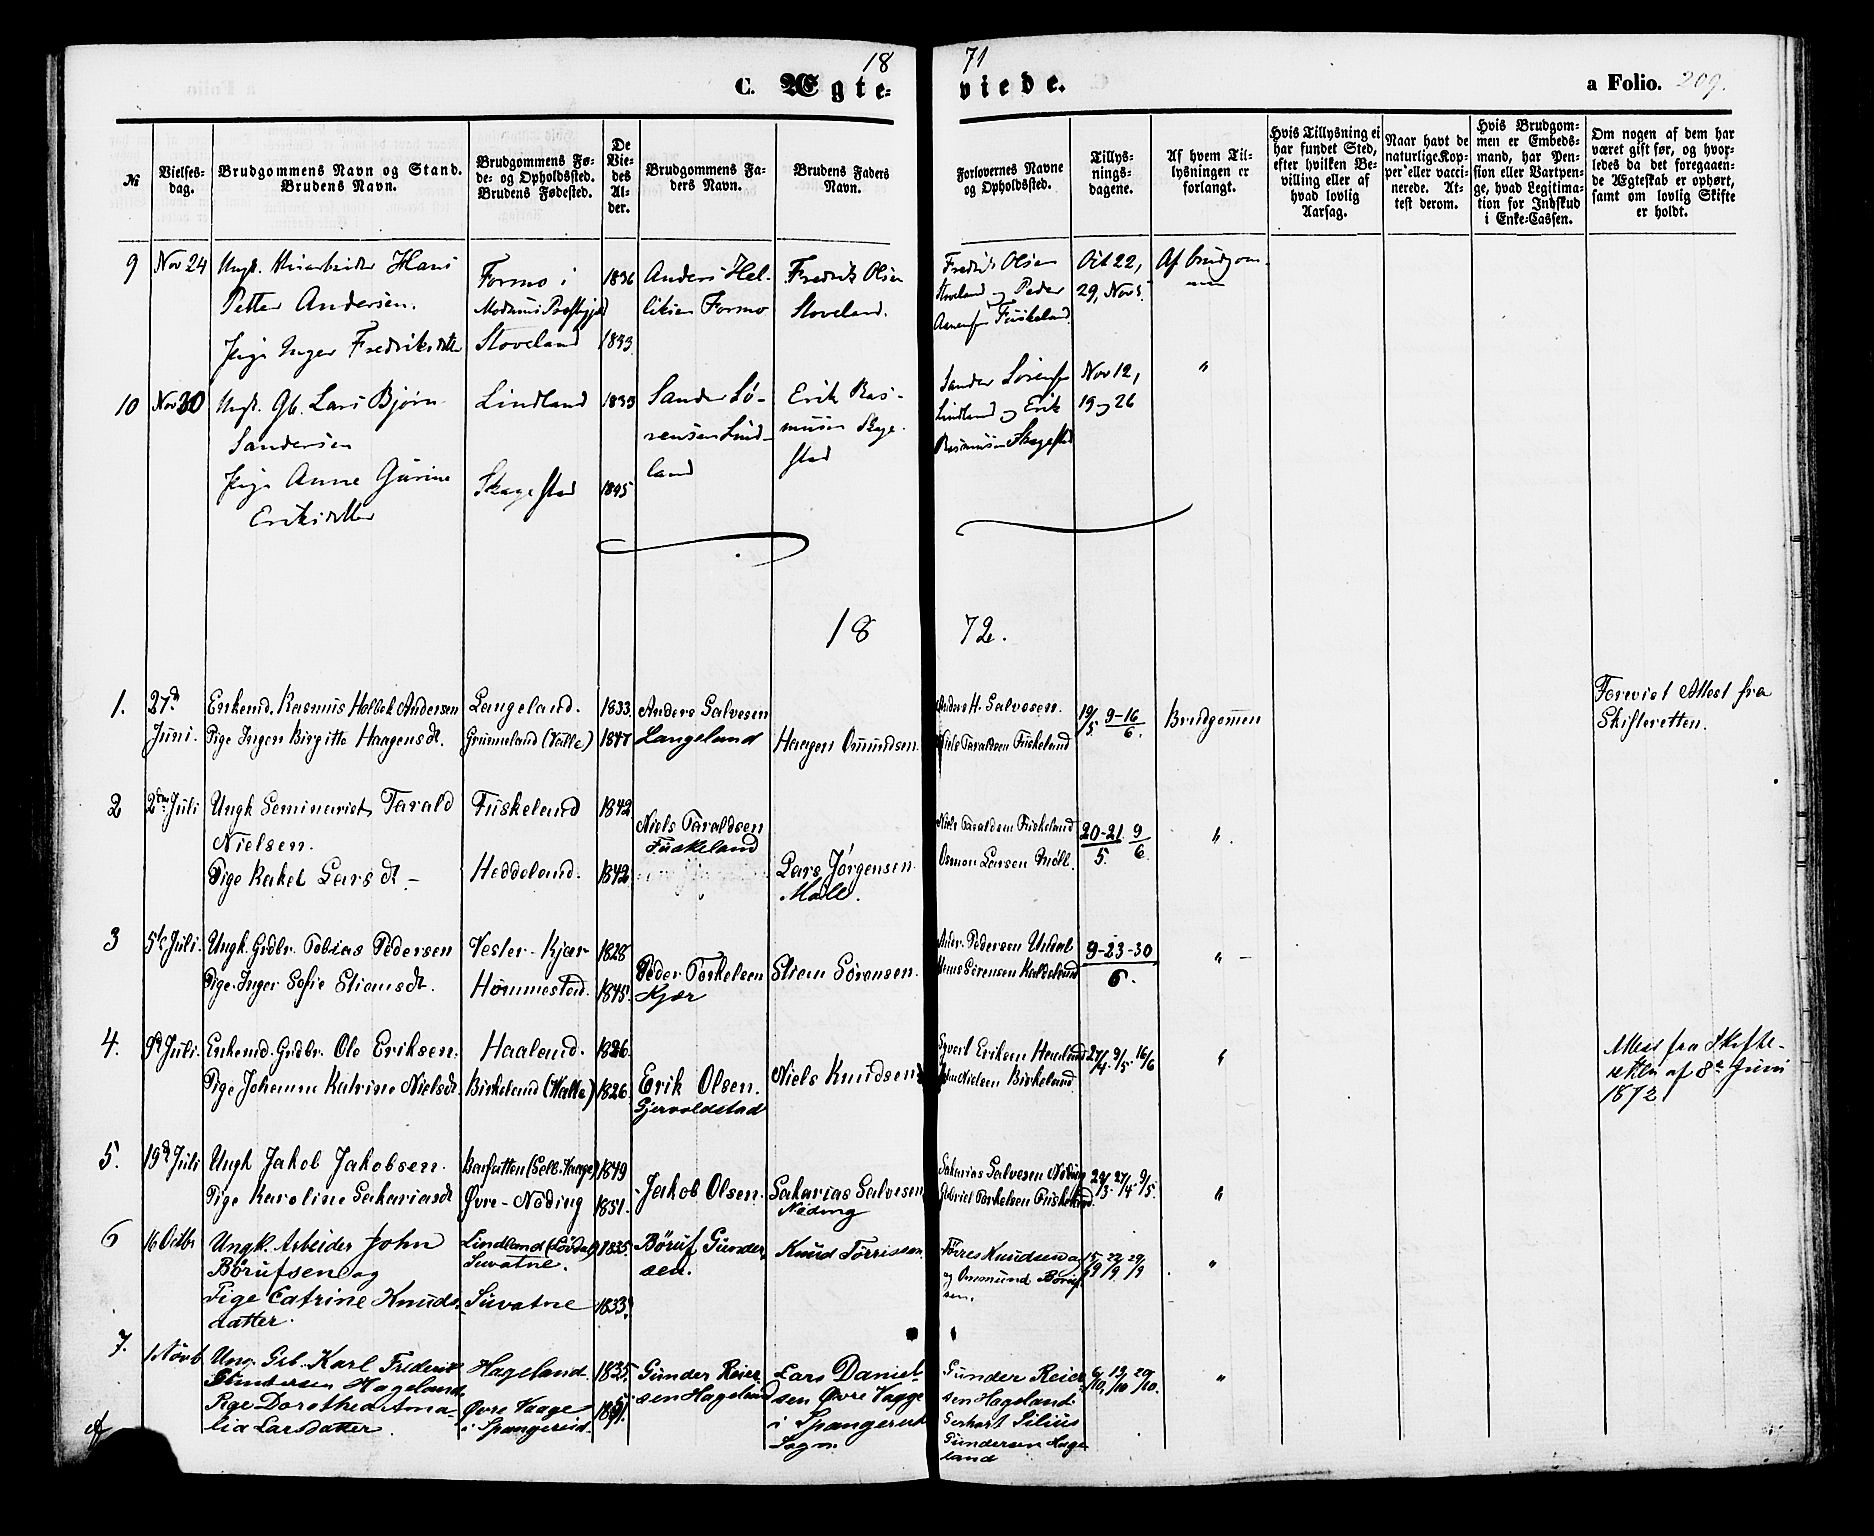 18 71
C. Ægte- viede. a Folio. 209.
№
Vielses-
dag.
Brudgommens Navn og Stand.
Brudens Navn.
Brudgommens Fø-
de- og Opholdssted.
Brudens Fødested.
De
Vie-
des
Al-
der.
Brudgommens Fa-
ders Navn.
Brudens Faders
Navn.
Forlovernes Navne
og Opholdssted.
Tillys-
nings-
dagene.
Af hvem Til-
lysningen er
forlangt.
Hvis Tillysning ei
har fundet Sted,
efter hvilken Be-
villing eller af
hvad lovlig
Aarsag.
Naar havt de
naturlige Kop-
per eller vacci-
nerede. At-
test derom.
Hvis Brudgom-
men er Embeds-
mand, har Pen-
sion eller Vartpen-
ge, hvad Legitima-
tion for Indskud
i Enke-Cassen.
Om nogen af dem har
været gift før, og hvor-
ledes da det foregaaen-
de Ægteskab er ophørt,
samt om lovlig Skifte
er holdt.
9 Nov 24 Ungk. Hans
Petter Andersen.
Pige Inger Fredriksdatter
Formo i
Modums Præstgjeld
Stoveland
1836
1833
Anders Hel-
liksen Formo
Fredrik Olsen
Stoveland.
Fredrik Olsen
Stoveland og Peder
Fuskeland
Oct 22,
29, Nov 5.
Af Brudgom-
men
10 Nov 30 Ungk. Gb. Lars Bjørn
Sandersen
Pige Anne Gurine
Eriksdatter
Lindland
Skagestad
1833
1845
Sander Sø-
rensen Lind-
land
Erik Ras-
musen Skage-
stad
Sander Sørensen
Lindland og Erik
Rasmusen Skagestad
Nov 12,
19 og 26
"
18 72.
1. 27d
Juni.
Enkemd. Rasmus Holbek Andersen
Pige Ingen Birgitte Haagensdt.
Langeland.
Grunneland (Valle)
1833.
1847
Anders Salvesen
Langeland
Haagen Omundsen.
Anders H. Salvesen.
Niels Taraldsen Fuskeland
19/5 9-16/6.
Brudgommen
Forevist Attest fra
Skifteretten.
2 2den Juli
Ungk Seminarist Tarald
Nielsen.
Pige Rakel Larsdt -
Fuskeland
Heddeland.
1842
1842
Niels Taraldsen
Fuskeland
Lars Jørgensen
Møll.
Niels Taraldsen Fuskeland
Osmon Larsen Møll.
20-21/5. 9/6.
".
3 5te Juli.
Ungk. Grdbr. Tobias Pedersen
Pige Inger Sofie Stiansdt.
Vester-Kjær
Hommestad.
1828
1845.
Peder Torkelsen
Kjær
Stian Sørensen.
Andr. Pedersen Undal
Hans Sørensen
9-23-30
6.
" -
4. 9d Juli.
Enkemd. Grdbr. Ole Eriksen.
Pige Johanne Katrine Nielsdt
Haaland.
Birkeland (Halle)
1826.
1826
Erik Olsen.
Gjervoldstad
Niels Knudsen
Syvert Eriksen
Nielsen Birkeland
27/4 9/5. 16/6
"
Attest fra Skifte-
retten af 8de Juni
1872
5. 19d Juli
Ungk Jakob Jakobsen.
Pige Karoline Sakariasdt
Øvre-Nøding
1849
1851.
Jakob Olsen.
Sakarias Salvesen
Nøding
Sakarias Salvesen Nøding
Gabriel Torkelsen Fuskeland.
27/4 9/5.
"
6 16 Octbr
Ungk. Arbeider John
Børufsen og
Pige Catrine Knuds-
datter.
Lindland (Løvdal)
Suvatne.
Suvatne
1835.
1833.
Børuf Gunder-
sen.
Knud Torrissen.
Torres Knudsen og
og Omsmund Børuf-
sen.
15/9 22/9 29/9
"
7. 1 Novb
Ung. Grb. Karl Frederik
Gundersen Hageland
Pige Dorothea Ama-
lia Larsdatter.
Hageland.
Øvre Vaage
i Spangereid.
1835.
Gunder Reier-
sen Hageland
Lars Daniel-
sen Øvre Vagge
i Spangereid
Sogn.
Gunder Reier-
sen Hageland
Gerhart Silius
Gundersen Hage-
land
6/10. 13/10 20/10.
"